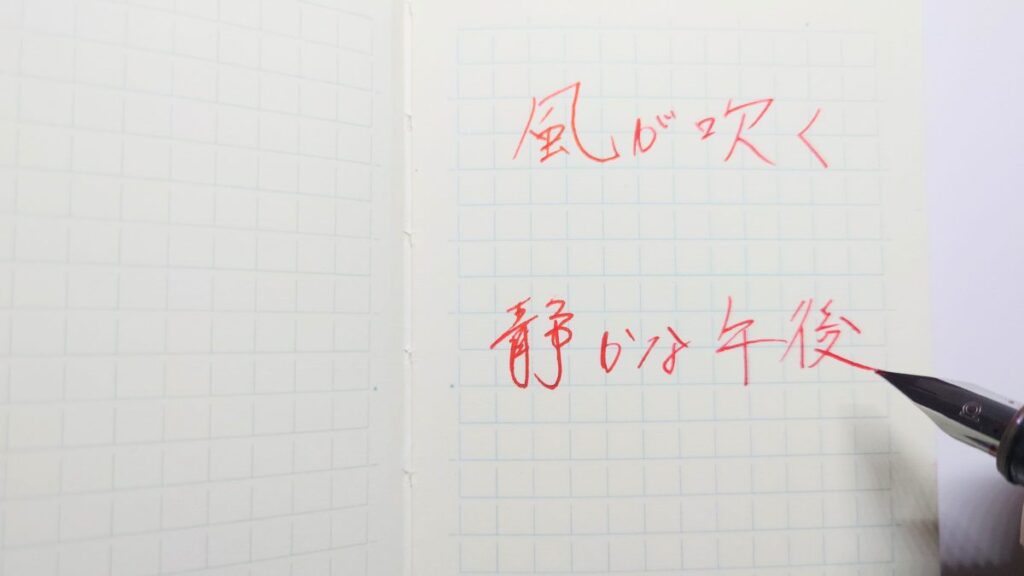 風が吹く
静かな午後